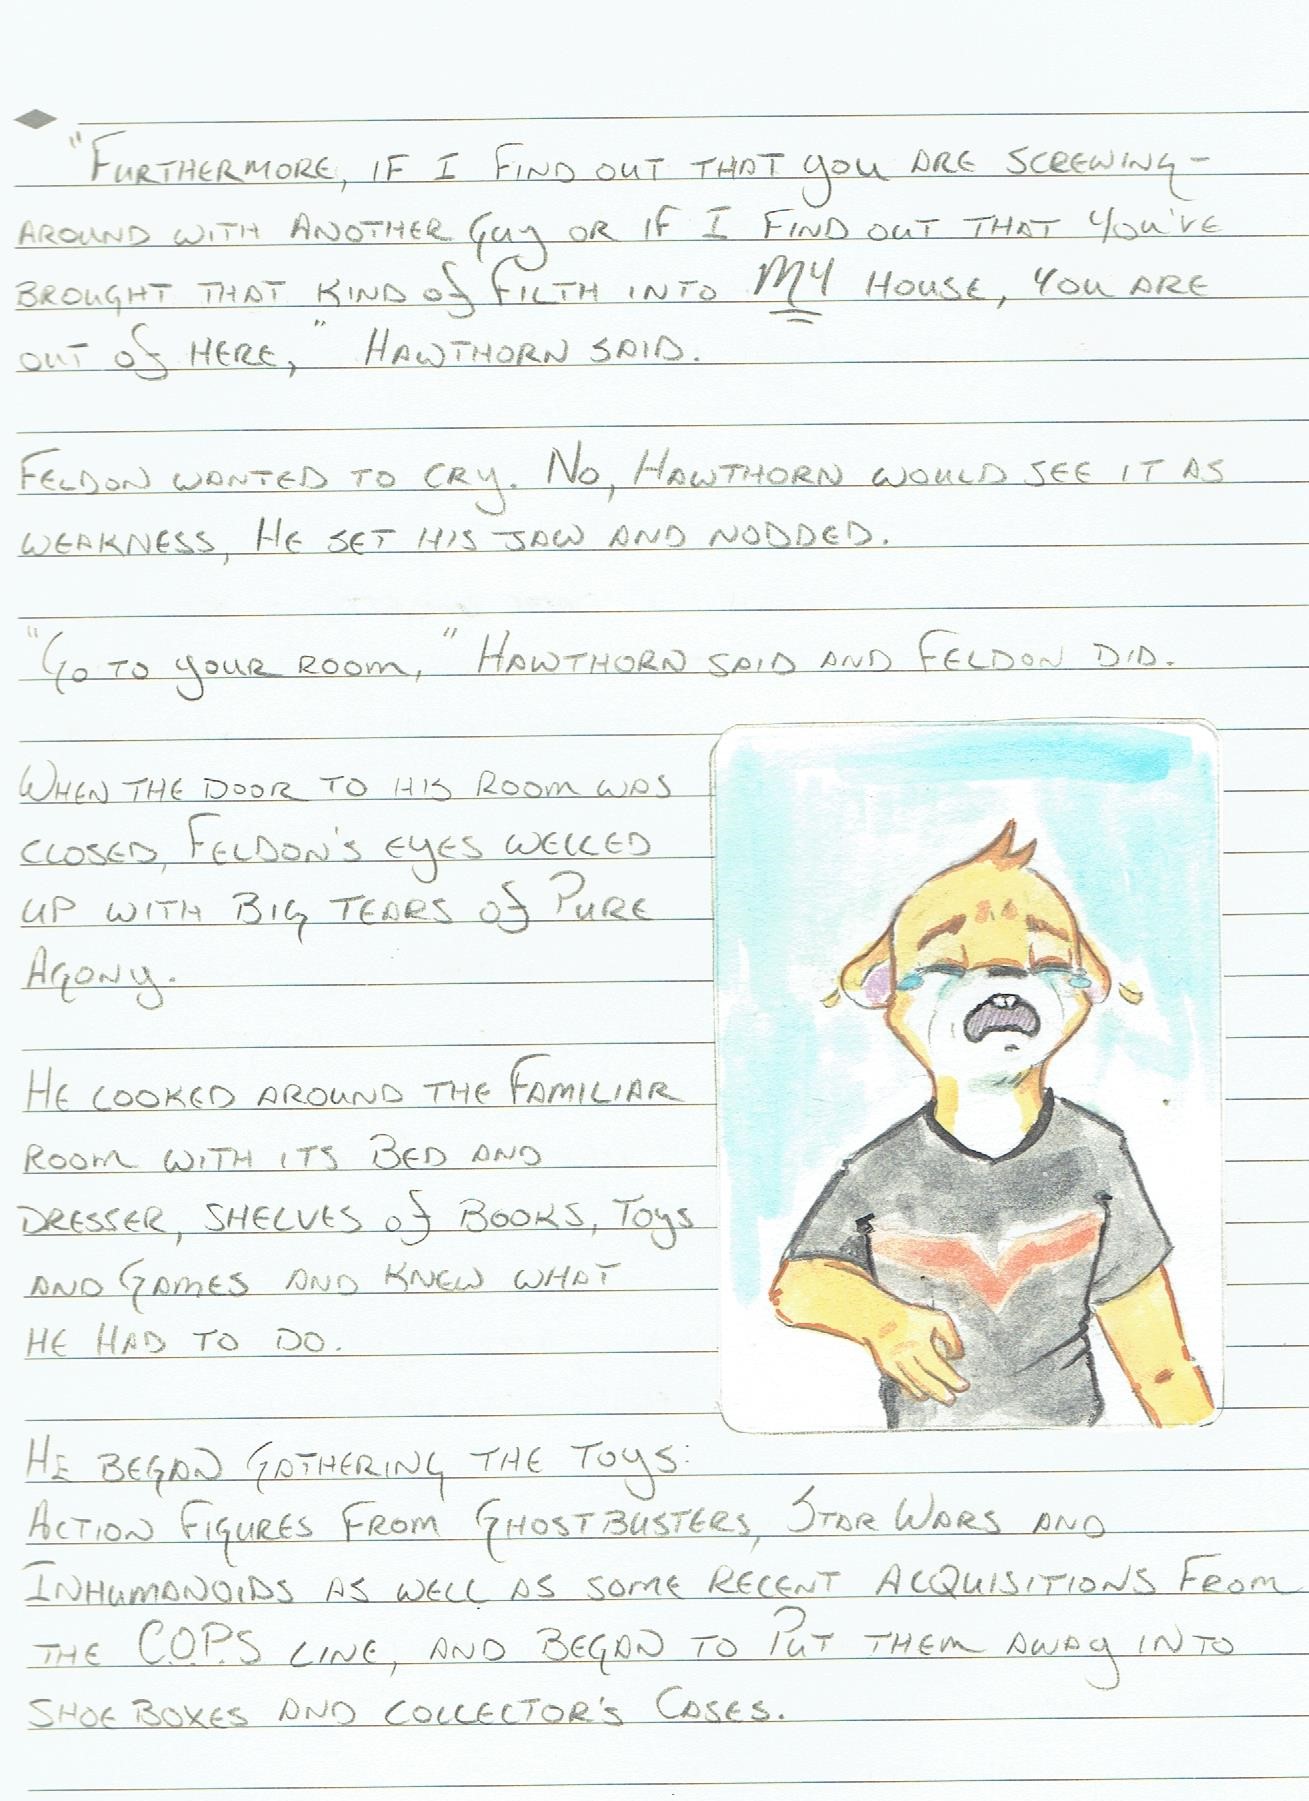 "Furthermore, if I find out that you are screwing-
around with another guy or if I find out that you've
brought that kind of filth into MY house, you are
out of here," Hawthorn said.
Feldon wanted to cry. No, Hawthorn would see it as
weakness, He set his jaw and nodded.
"Go to your room," Hawthorn said and Feldon did.
When the door to his room was
closed, Feldon's eyes welled
up with big tears of pure
agony.
He looked around the familiar
room with its bed and
dresser, shelves of books, toys
and games and knew what
he had to do.
He began gathering the toys:
Action figures from Ghostbusters, Star Wars and
Inhumanoids as well as some recent acquisitions from
the C.O.P.S line, and began to put them away into
shoe boxes and collector's cases.